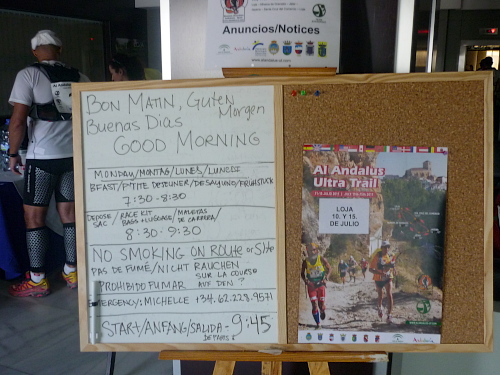 Anuncios/Notices
BON MATIN, GUTEN MORGEN
BUENAS DIAS
GOOD MORNING
MONDAY/MONTAG/LUNES/LUNEDI
BFAST/P'TITE DEJEUNER/DESAYUNO/FRUHSTUCK
7:30-8:30
DEPOSE SAC / RACE KIT BAGS+LUGGAGE / MALETAS DE CARRERA/
8:30-9:30
NO SMOKING ON ROUTE or SITE
PAS DE FUMÉ/NICHT RAUCHEN
SUR LA COURSE
PROHIBIDO FUMAR AUF DEN ?
EMERGENCY: MICHELLE +34.62.228.9571
START/ANFANG/SALIDA - 9:45
DEPARTS
Al Andalus
Ultra Trail
LOJA
10. Y 15.
DE JULIO